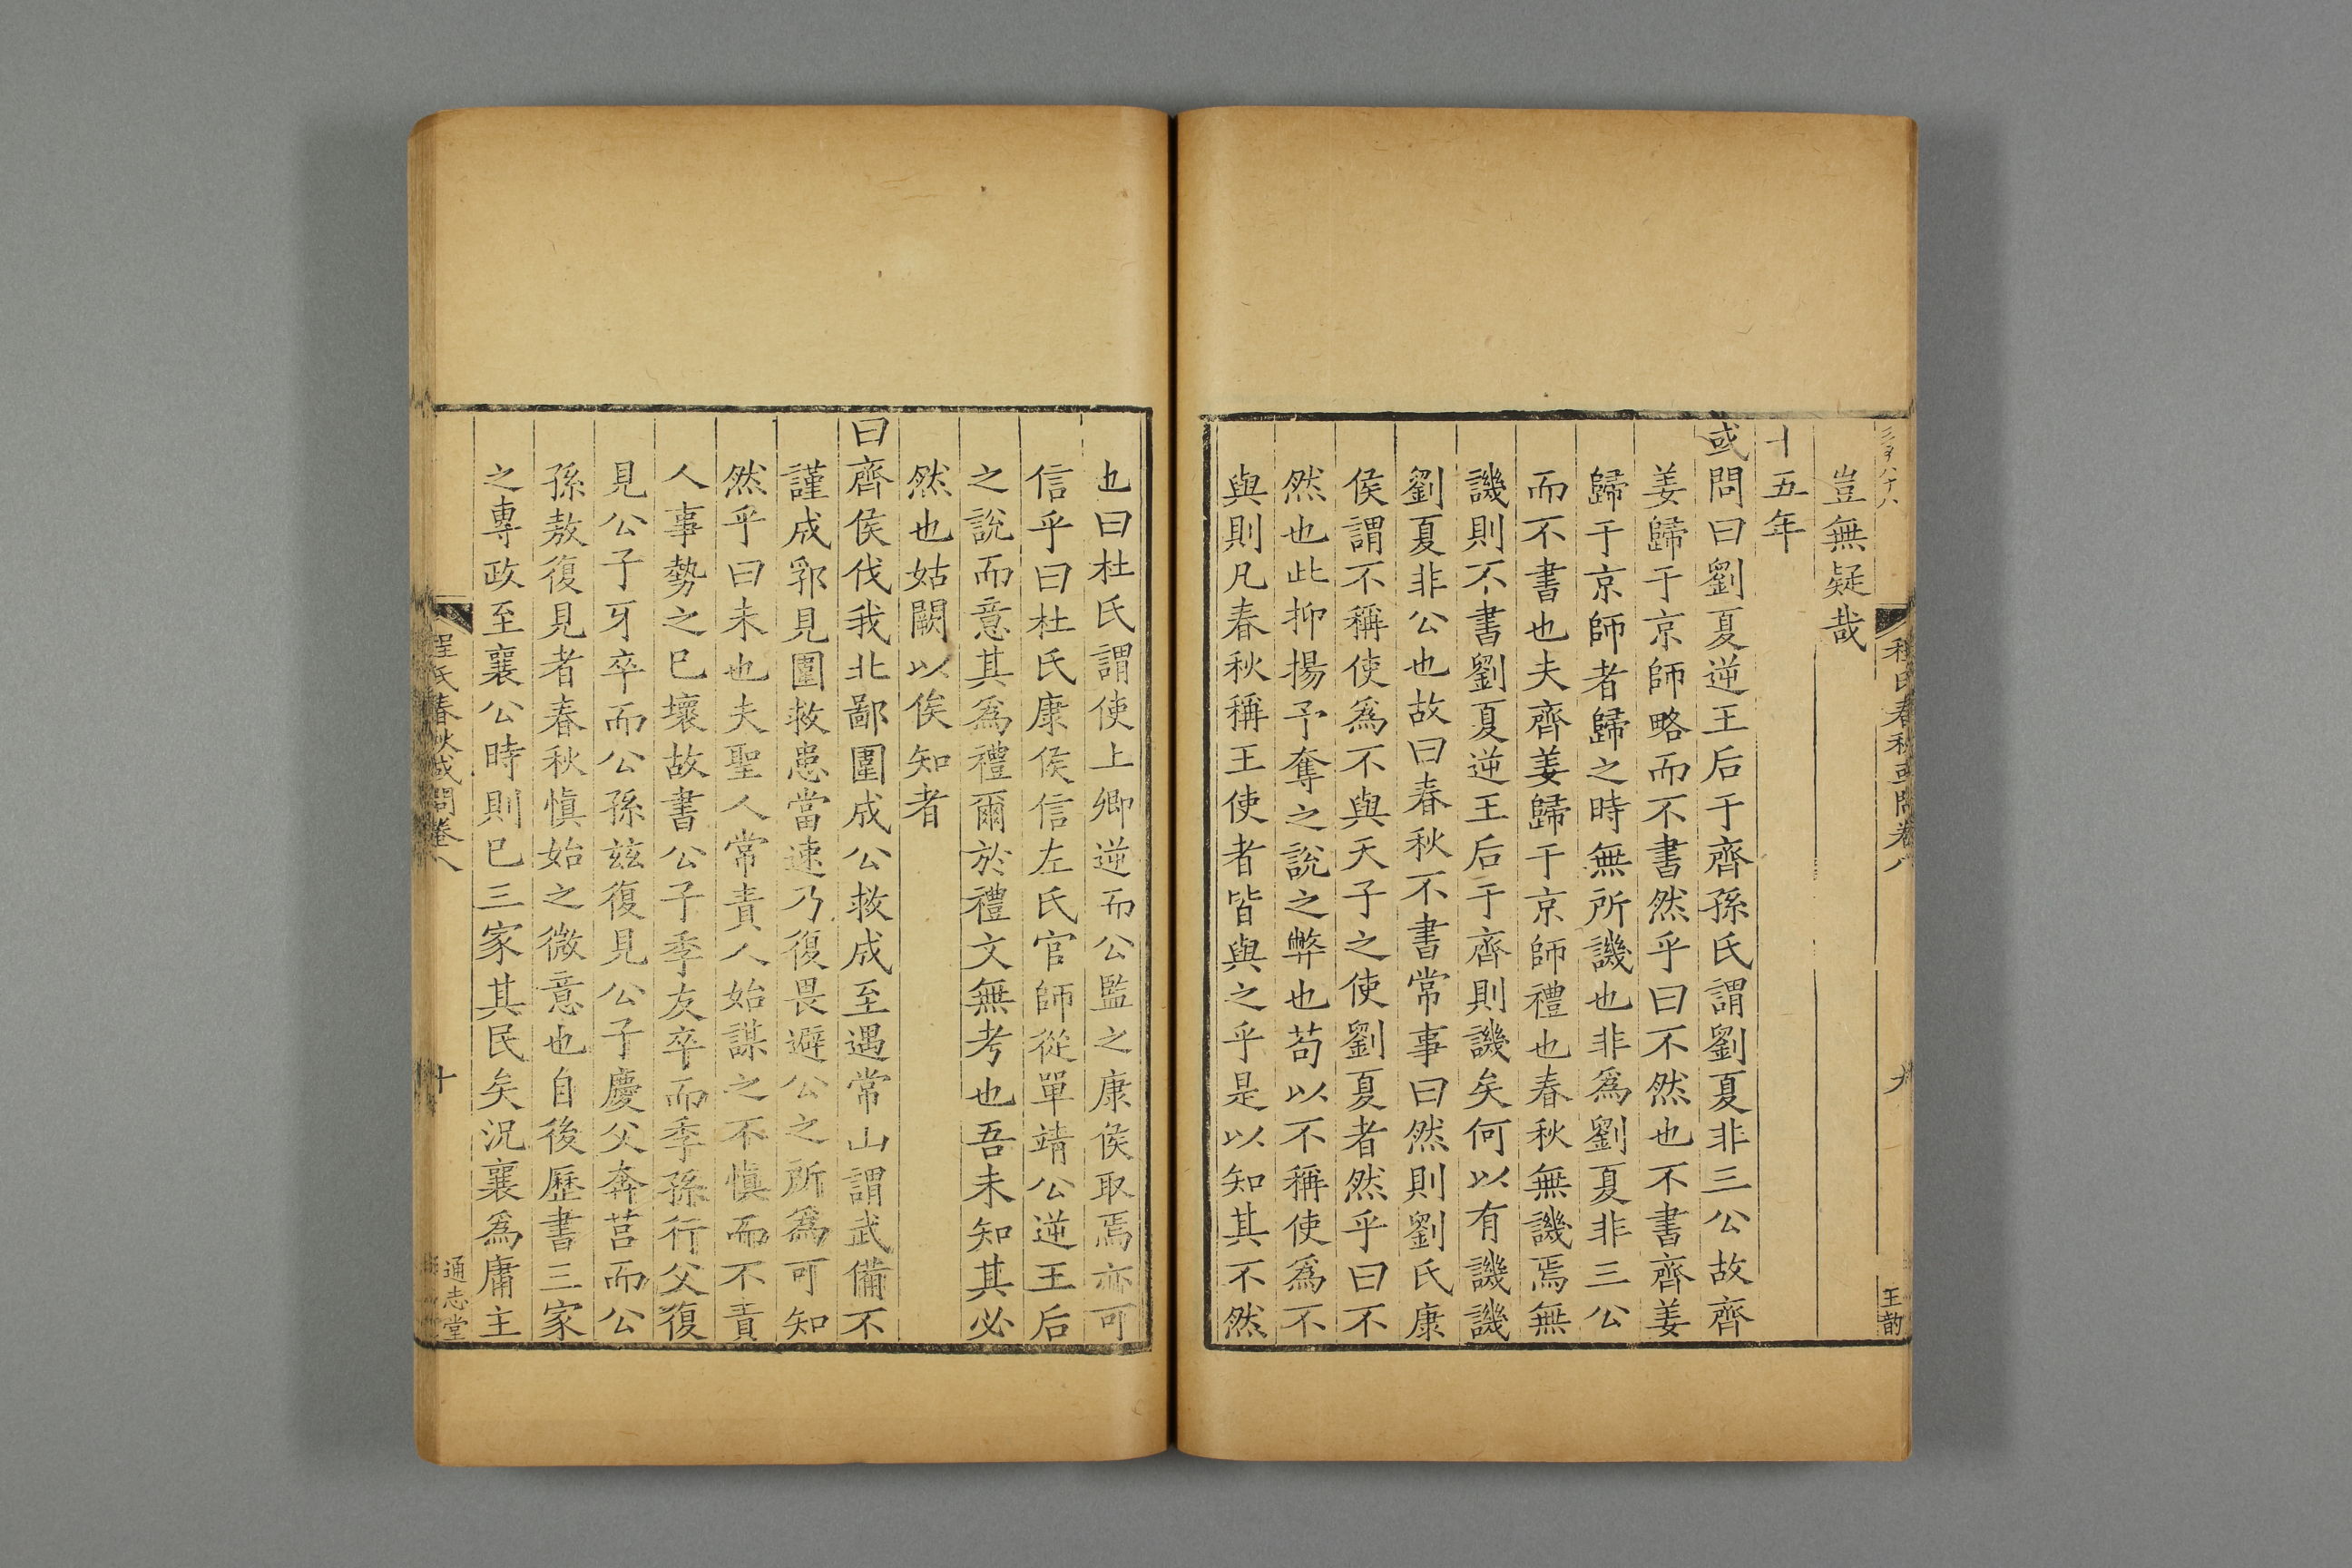 豈無疑哉
十五年
或問曰劉夏逆王后于齊孫氏謂劉夏非三公故齊
姜歸于京師略而不書然乎曰不然也不書齊姜
歸于京師者歸之時無所譏也非爲劉夏非三公
而不書也夫齊姜歸于京師禮也春秋無譏焉無
譏則不書劉夏逆王后于齊則譏矣何以有譏譏
劉夏非公也故曰春秋不書常事曰然則劉氏康
侯謂不稱使爲不與天子之使劉夏者然乎曰不
然也此抑揚予奪之說之弊也苟以不稱使爲不
與則凡春秋稱王使者皆與之乎是以知其不然
程氏春秋或問卷八
九
王韵
也曰杜氏謂使上卿逆而公監之康侯取焉亦可
信乎曰杜氏康侯信左氏官師從單靖公逆王后
之說而意其爲禮爾於禮文無考也吾未知其必
然也姑闕以俟知者
曰齊侯伐我北鄙圍成公救成至遇常山謂武備不
謹成郛見圍救患當速乃復畏避公之所爲可知
然乎曰未也夫聖人常責人始謀之不慎而不責
人事勢之已壞故書公子季友卒而季孫行父復
見公子牙卒而公孫茲復見公子慶父奔莒而公
孫敖復見者春秋慎始之微意也自後歷書三家
之專政至襄公時則已三家其民矣況襄爲庸主
程氏春秋或問卷八
十
通志堂